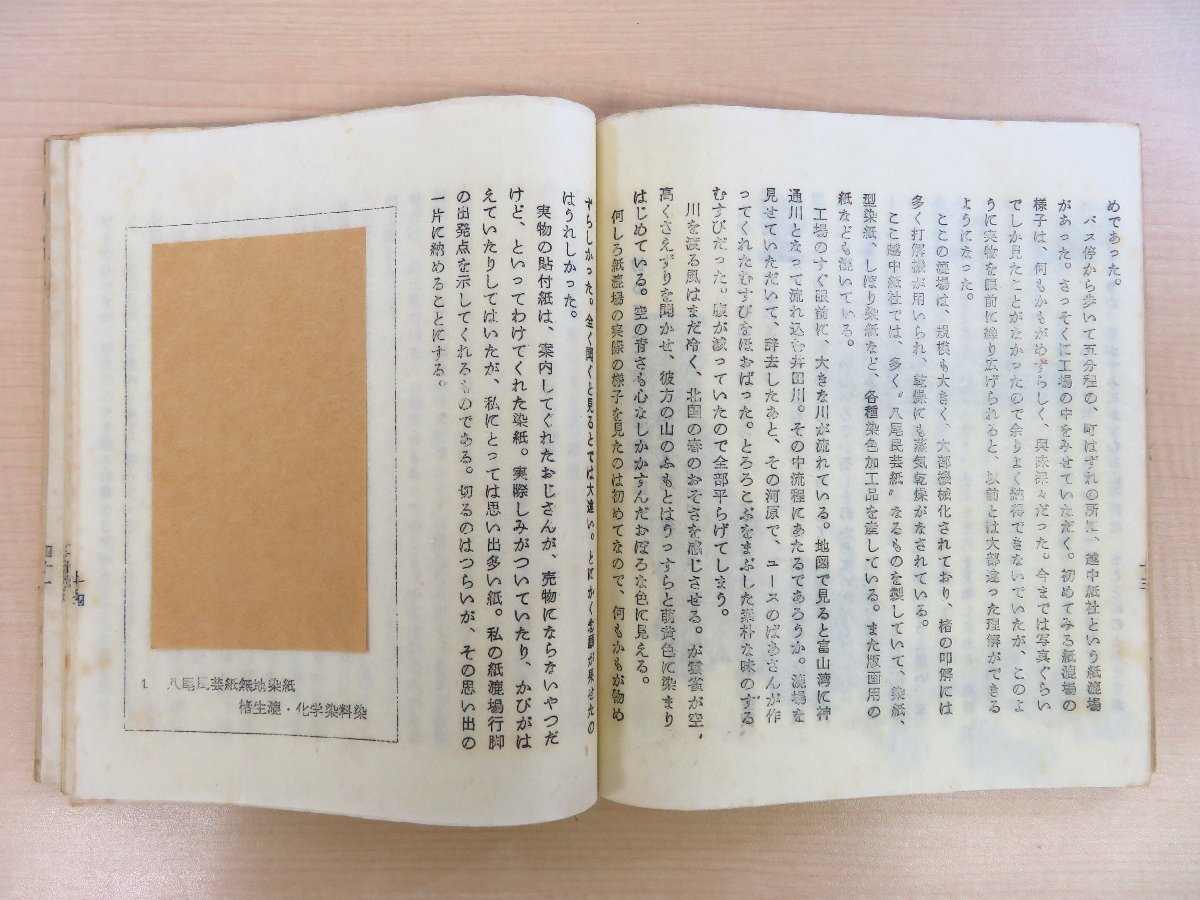 めであった。
バス停から歩いて五分程の、町はずれの所に、越中紙社という紙漉場
があった。さっそくに工場の中をみせていただく。初めてみる紙漉場の
様子は、何もかもがめずらしく、興味深々だった。今までは写真ぐらい
でしか見たことがなかったので余りよく納得できないでいたが、このよ
うに実物を眼前に繰り広げられると、以前とは大部違った理解ができる
ようになった。
ここの漉場は、規模も大きく、大部機械化されており、楮の叩解には
多く打解機が用いられ、乾燥にも蒸気乾燥がなされている。
ここ越中紙社では、多く〝八尾民芸紙〟なるものを製していて、染紙、
型染紙、しぼり染紙など、各種染色加工品を産している。また版画用の
紙なども漉いている。
工場のすぐ眼前に、大きな川が流れている。地図で見ると富山湾に神
通川となって流れ込む井田川。その中流程にあたるであろうか。漉場を
見せていただいて、辞去したあと、その河原で、ユースのばあさんが作
ってくれたむすびをほおばった。とろろこぶをまぶした素朴な味のする
むすびだった。腹が減っていたので全部平らげてしまう。
川を渡る風はまだ冷く、北国の春のおそさを感じさせる。が雲雀が空
高くさえずりを聞かせ、彼方の山のふもとはうっすらと萌黄色に染まり
はじめている。空の青さも心なしかかすんだおぼろな色に見える。
何しろ紙漉場の実際の様子を見たのは初めてなので、何もかもが物め
ずらしかった。全く聞くと見るとでは大違い。とにかく念願が果せたの
はうれしかった。
実物の貼付紙は、案内してくれたおじさんが、売物にならないやつだ
けど、といってわけてくれた染紙。実際しみがついていたり、かびがは
えていたりしてはいたが、私にとっては思い出多い紙。私の紙漉場行脚
の出発点を示してくれるものである。切るのはつらいが、その思い出の
一片に納めることにする。
1. 八尾民芸紙無地染紙
楮生漉・化学染料染
十四